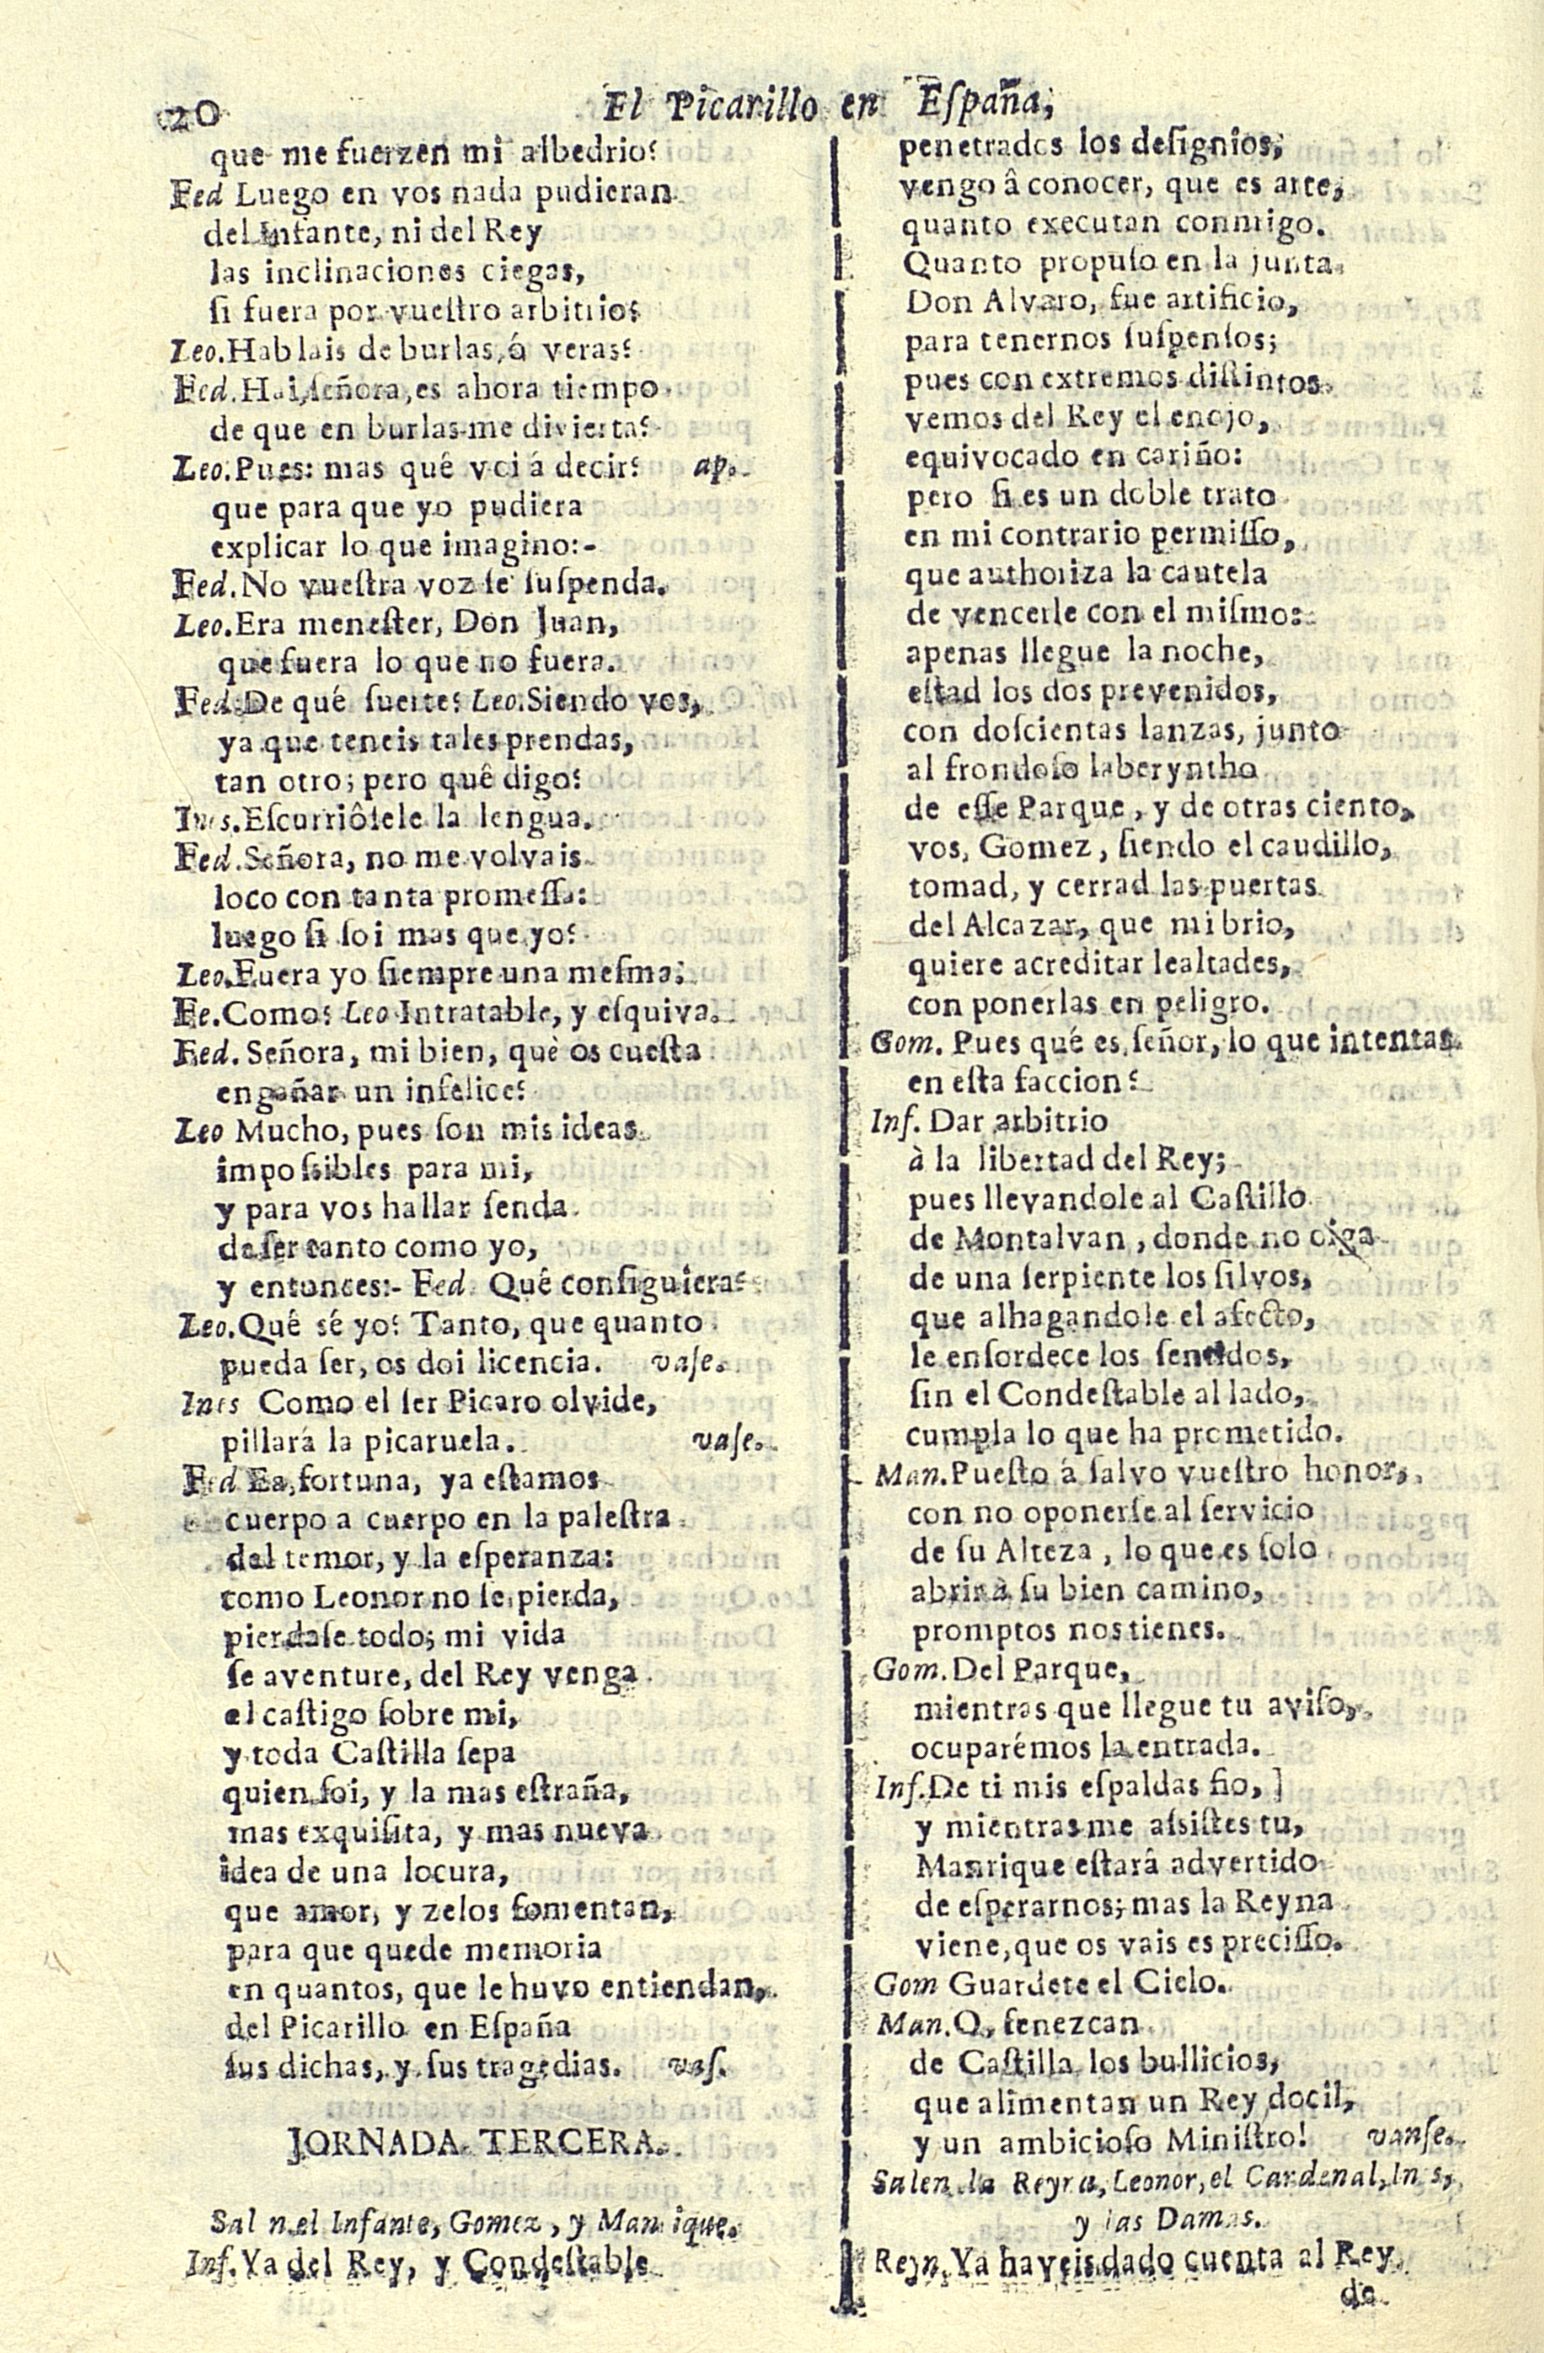 20
El Picarillo en Eſpaña,
que me fuerzen mi albedrio?
Fed Luego en vos nada pudieran
del Infante, ni del Rey
las inclinaciones ciegas,
ſi fuera por vueſtro arbitrio?
Leo. Hablais de burlas, ó veras?
Fed. Hai, ſeñora, es ahora tiempo
de que en burlas me divierta?
Leo. Pues: mas qué voi á decir? ap.
que para que yo pudiera
explicar lo que imagino:-
Fed. No vueſtra voz ſe ſuſpenda.
Leo. Era meneſter, Don Juan,
que fuera lo que no fuera.
Fed. De qué ſuerte? Leo. Siendo vos,
ya que teneis tales prendas,
tan otro; pero quê digo?
Ines. Eſcurriôſele la lengua.
Fed. Señora, no me volvais
loco con tanta promeſſa:
luego ſi ſoi mas que yo?
Leo. Fuera yo ſiempre una meſma;
Fe. Como? Leo Intratable, y eſquiva.
Fed. Señora, mi bien, què os cueſta
engañar un infelice?
Leo Mucho, pues ſon mis ideas
impoſsibles para mi,
y para vos hallar ſenda
de ſer tanto como yo,
y entonces:- Fed. Qué conſiguiera?
Leo. Qué sé yo? Tanto, que quanto
pueda ſer, os doi licencia. vaſe.
Ines Como el ſer Picaro olvide,
pillará la picaruela. vaſe.
Fed Ea, fortuna, ya eſtamos
cuerpo a cuerpo en la paleſtra
del temor, y la eſperanza:
como Leonor no ſe pierda,
pierdaſe todo; mi vida
ſe aventure, del Rey venga
el caſtigo ſobre mi,
y toda Caſtilla ſepa
quien ſoi, y la mas eſtraña,
mas exquiſita, y mas nueva
idea de una locura,
que amor, y zelos fomentan,
para que quede memoria
en quantos, que le huvo entiendan,
del Picarillo en Eſpaña
ſus dichas, y ſus tragedias. vaſ.
JORNADA TERCERA.
Sal n el Infante, Gomez, y Manrique.
Inf. Ya del Rey, y Condeſtable
penetrados los deſignios,
vengo â conocer, que es arte,
quanto executan conmigo.
Quanto propuſo en la junta
Don Alvaro, fue artificio,
para tenernos ſuſpenſos;
pues con extremos diſtintos
vemos del Rey el enojo,
equivocado en cariño:
pero ſi es un doble trato
en mi contrario permiſſo,
que authoriza la cautela
de vencerle con el miſmo:
apenas llegue la noche,
eſtad los dos prevenidos,
con doſcientas lanzas, junto
al frondoſo laberyntho
de eſſe Parque, y de otras ciento,
vos, Gomez, ſiendo el caudillo,
tomad, y cerrad las puertas
del Alcazar, que mi brio,
quiere acreditar lealtades,
con ponerlas en peligro.
Gom. Pues qué es, ſeñor, lo que intentas
en eſta faccion?
Inf. Dar arbitrio
à la libertad del Rey;
pues llevandole al Caſtillo
de Montalvan, donde no oiga
de una ſerpiente los ſilvos,
que alhagandole el afecto,
le enſordece los ſentidos,
ſin el Condeſtable al lado,
cumpla lo que ha prometido.
Man. Pueſto á ſalvo vueſtro honor,
con no oponerſe al ſervicio
de ſu Alteza, lo que es ſolo
abrirà ſu bien camino,
promptos nos tienes.
Gom. Del Parque,
mientras que llegue tu aviſo,
ocuparémos la entrada.
Inf. De ti mis eſpaldas fio, ]
y mientras me aſsiſtes tu,
Manrique eſtarâ advertido
de eſperarnos; mas la Reyna
viene, que os vais es preciſſo.
Gom Guardete el Cielo.
Man. O, fenezcan
de Caſtilla los bullicios,
que alimentan un Rey docil,
y un ambicioſo Miniſtro! vanſe.
Salen la Reyna, Leonor, el Cardenal, In s,
y las Damas.
Reyn. Ya haveis dado cuenta al Rey
de